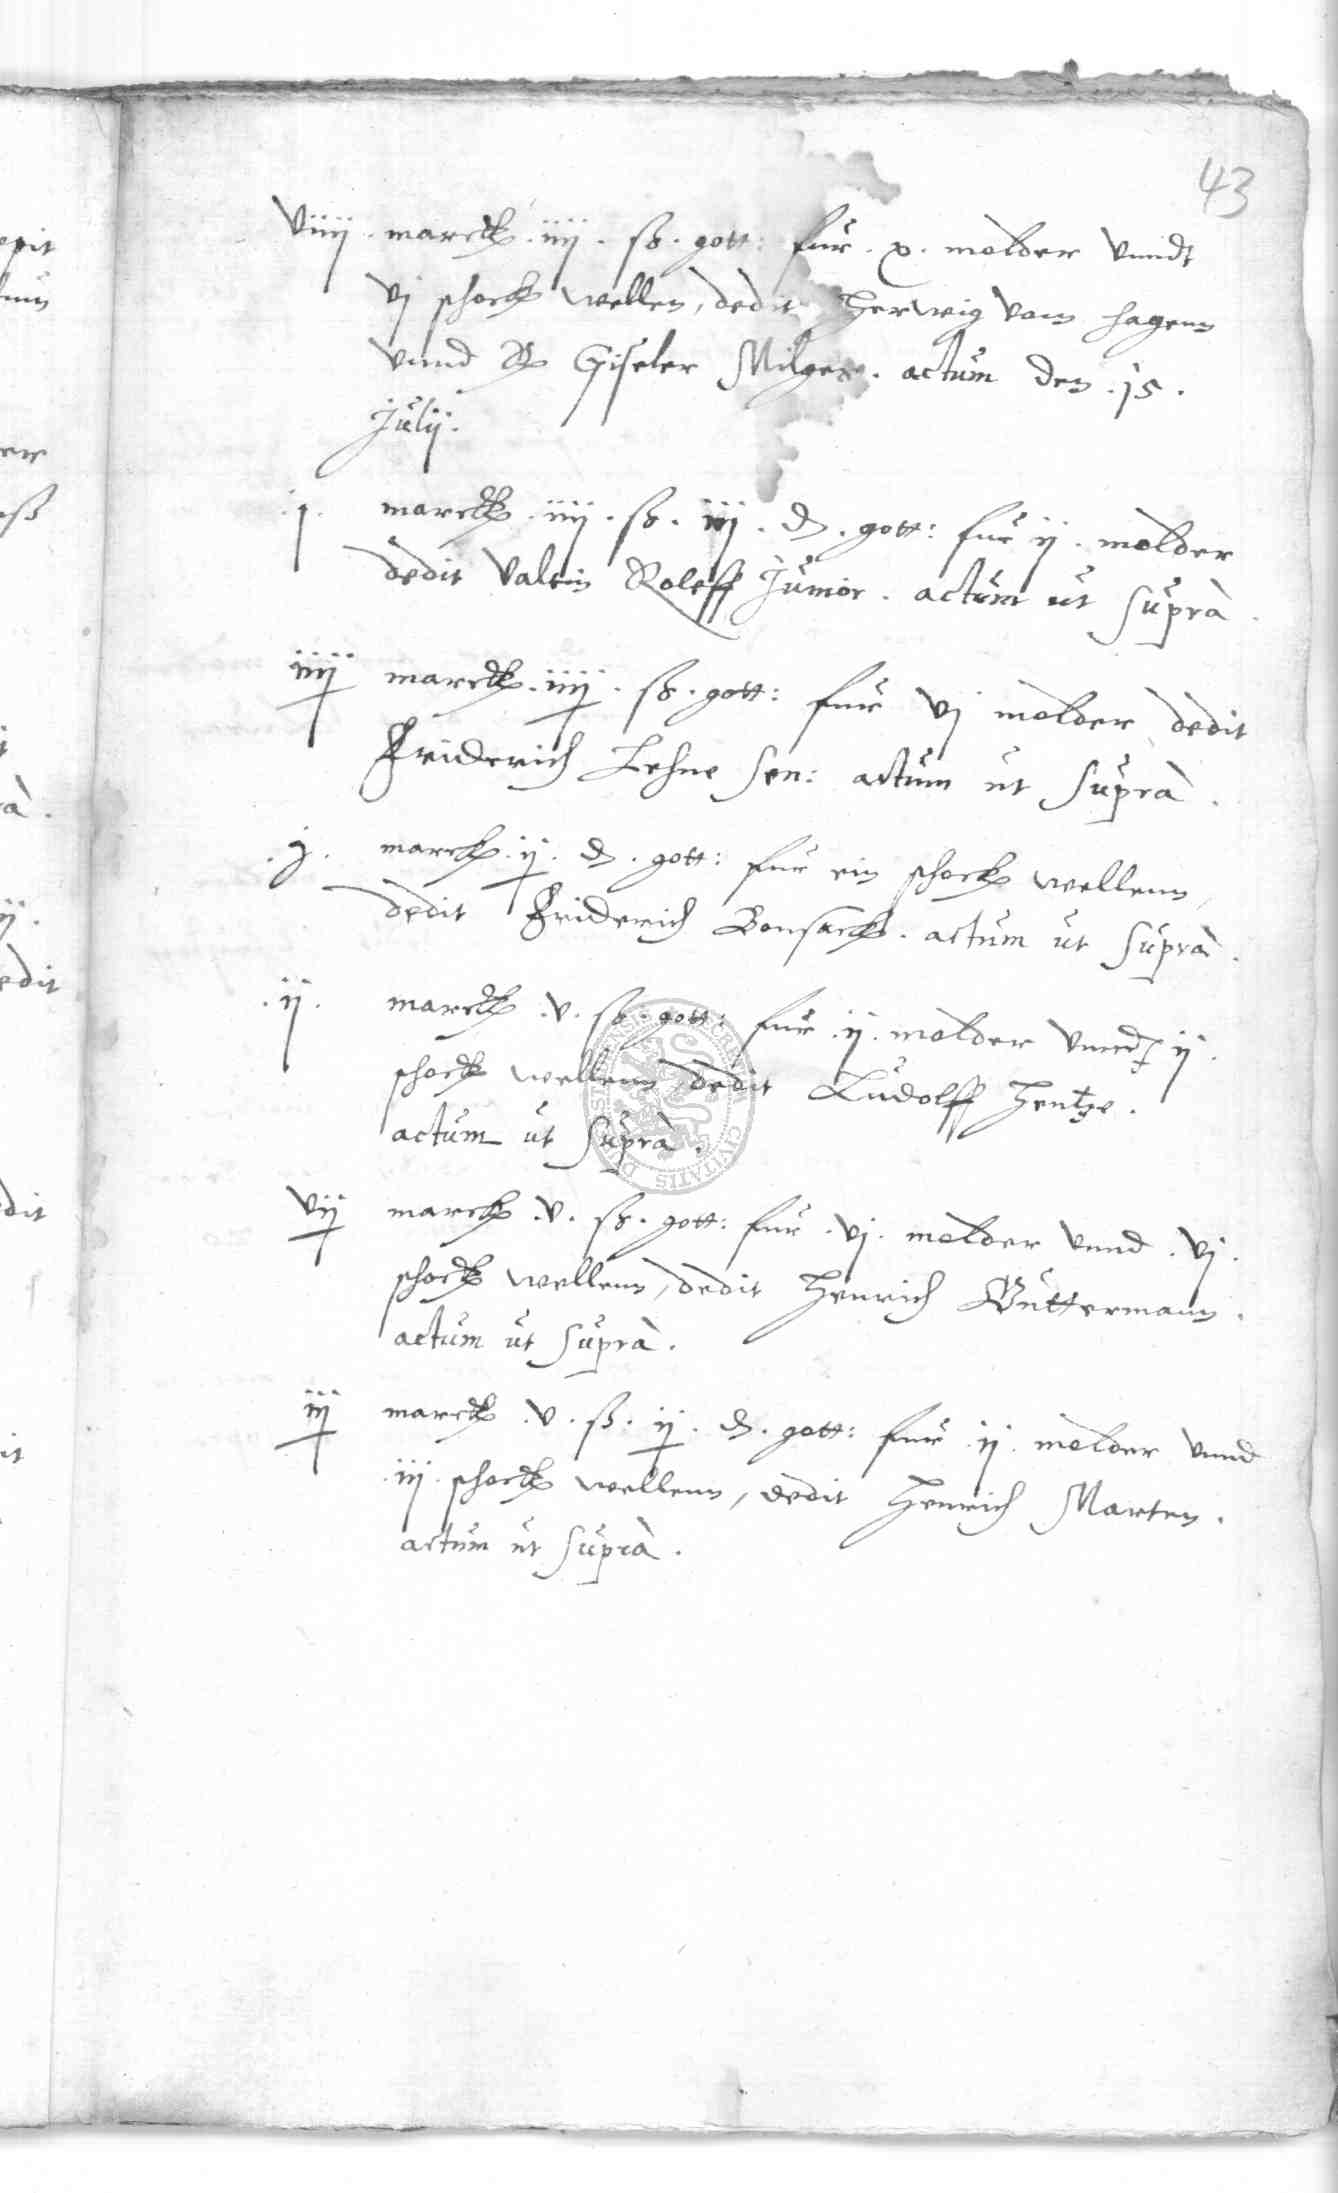 43
viiij . marck . iiij . ß . gott: fur . x . molder vnndt
vj schock wellen, dedit Herwig vam hagenn
vnnd Giseler Milges . actum den . 15 .
Julij .
. j . marck . iiij . ß . iij . ₰ . gott: fur ij . molder
dedit Valtin Roleff Junior . actum ut Suprà .
iiij marck . iiij . ß . gott: fur vj molder dedit
Friderich Lehne Sen: actum ut Suprà .
. j . marck . ij . ₰ . gott: fur ein schock wellenn,
dedit Friderich Bonsack . actum ut Suprà .
. ij . marck . v . ß . gott: fur . ij . molder vnnd ij .
schock wellenn, dedit Ludolff Hentze .
actum ut Suprà .
vij marck . v . ß . gott: fur . vj . molder vnnd . vj .
schock wellenn, dedit Henrich Guttermann .
actum ut Suprà .
iij marck . v . ß . ij . ₰ . gott: fur . ij . molder vnnd
. iij . schock wellenn, dedit Henrich Marten .
actum ut Suprà .
SECRET
CIVITATIS
epit
er
à .
ij .
edit
dit
it